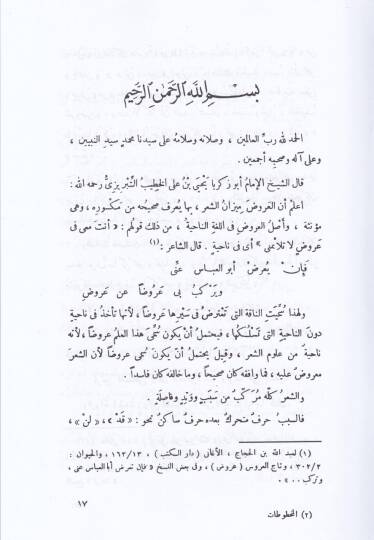 بسم الله الرحمن الرحيم
الحمد لله رب العالمين ، وصلاته وسلامه على سيدنا محمد سيد النبيين ،
وعلى آله وصحبه أجمعين .
قال الشيخ الإمام أبو زكريا يَحْيَى بنُ على الخطيبُ التِّبْرِيزِىُّ رحمه الله :
اعلم أن العَروضَ ميزانُ الشعر ، بها يُعرف صحيحُه من مَكْسورِه ، وهى
مؤنثة ، وأصلُ العروض فى اللغةِ الناحيةُ ، من ذلك قولهُم : « أنتَ معى فى
عَروضٍ لا تلائمنى » أى فى ناحيةٍ . قال الشاعر : (١)
فَإِنْ يُعرِضْ أبو العباسِ عنِّى
ويَرْكبْ بى عَرُوضًا عن عَروضِ
ولهذا سُمِّيَتِ الناقةُ التى تَعْتَرِضُ فى سَيْرِها عَروضًا ، لأنها تأخذُ فى ناحيةٍ
دونَ الناحيةِ التى تَسْلُكُها ، فيحتملُ أنْ يكونَ سُمِّىَ هذا العلمُ عروضًا ، لأنه
ناحيةٌ من علوم الشعر ، وقيلَ يحتملُ أنْ يكونَ سُمِّىَ عروضًا لأن الشعرَ
معروضٌ عليه ، فما وافقه كان صحيحًا ، وما خالفه كان فاسدًا .
والشعرُ كلُّه مُرَكَّبٌ من سَبَبٍ ووَتِدٍ وفاصِلةٍ .
فالسببُ حرفٌ متحركٌ بعده حرفٌ ساكنٌ نحوُ : « قَدْ » ، « لَنْ » ،
(١) لعبد الله بن الحجاج ، الأغانى ( دار الكتب ) ، ١٦٢/١٣ ، والحيوان :
٣٠٢/٢ ، وتاج العروس ( عروض ) ، وفى بعض النسخ « فإن تعرض أبا العباس عنى ،
وتركب .. » .
١٧
(٢) المخطوطات